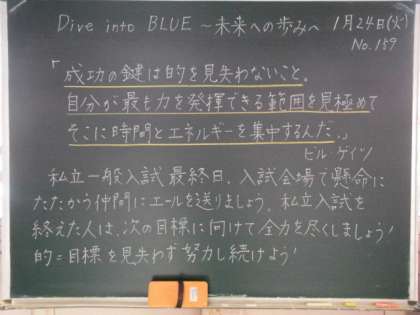 Dive into BLUE ～未来への歩み～ 1月24日(火)
No.159
「成功の鍵は的を見失わないこと。
自分が最も力を発揮できる範囲を見極めて
そこに時間とエネルギーを集中するんだ。」
ビル・ゲイツ
私立一般入試最終日、入試会場で懸命に
たたかう仲間にエールを送りましょう。私立入試を
終えた人は、次の目標に向けて全力を尽くしましょう！
的＝目標を見失わず努力し続けよう！